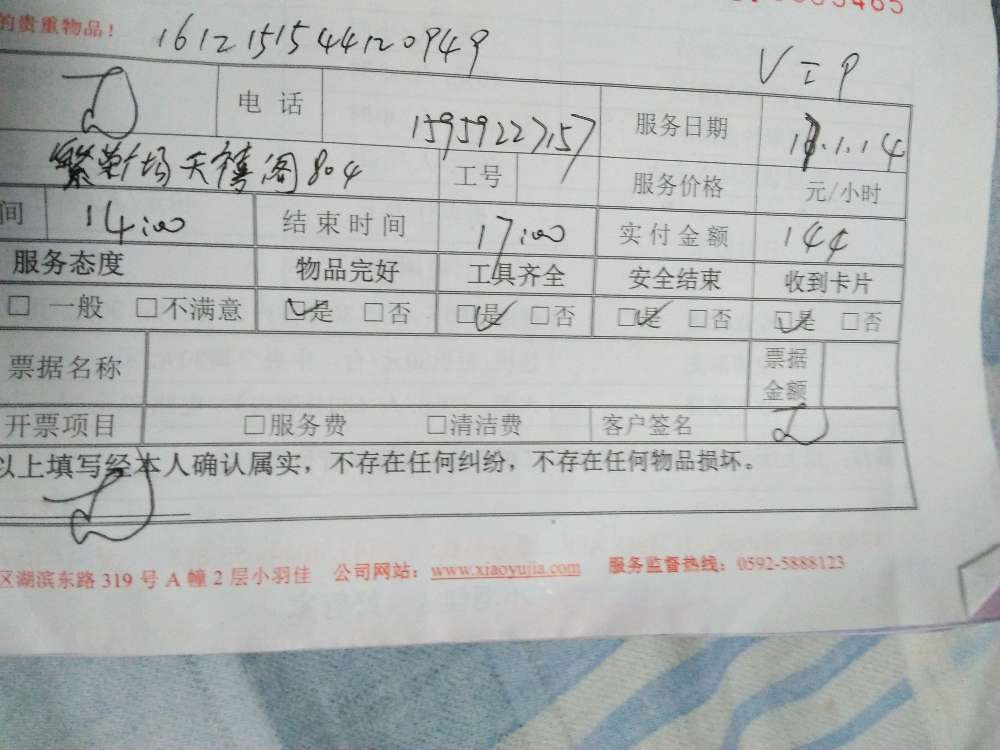 的贵重物品！ 161215154412 0949 VIP
电 话 15959227157 服务日期 17.1.14
繁荣广场天禧阁804 工号 服务价格 元/小时
间 14:00 结束时间 17:00 实付金额 144
服务态度 物品完好 工具齐全 安全结束 收到卡片
□ 一般 □不满意 ☑是 □否 ☑是 □否 ☑是 □否 ☑是 □否
票据名称 票据金额
开票项目 □服务费 □清洁费 客户签名
以上填写经本人确认属实，不存在任何纠纷，不存在任何物品损坏。
区湖滨东路 319 号 A 幢 2 层小羽佳 公司网站：www.xiaoyujia.com 服务监督热线：0592-5888123